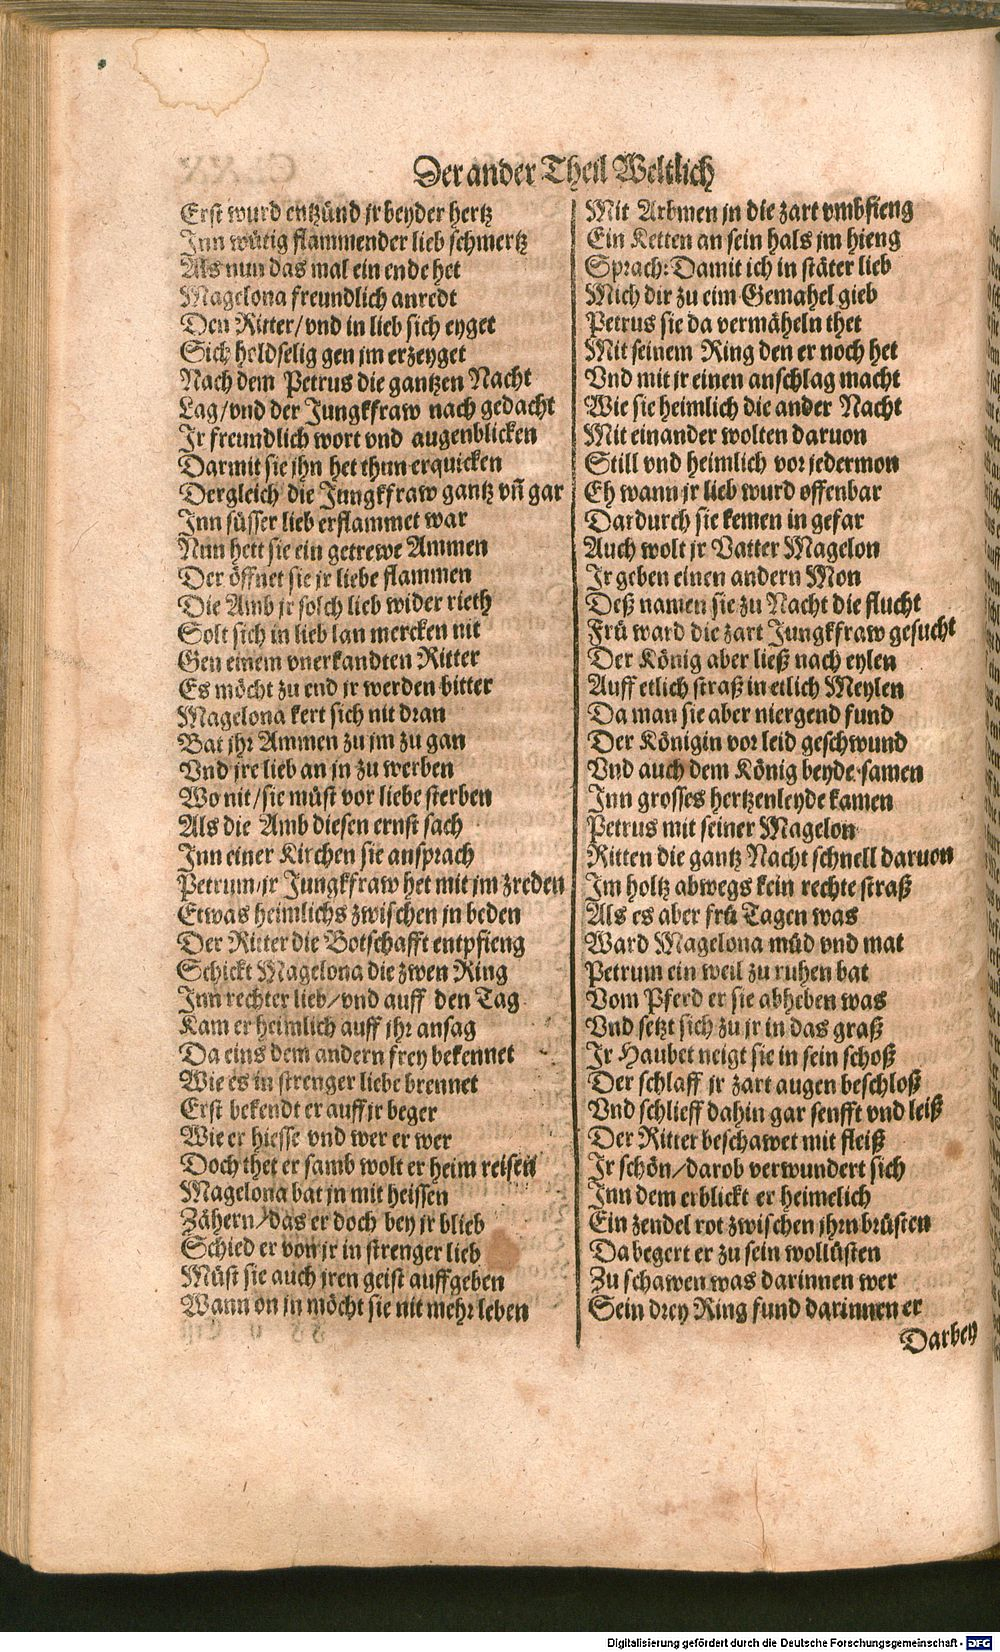 Der ander Theil Weltlich
Erst wurd entzünd jr beyder hertz
Inn wütig flammender lieb schmertz
Als nun das mal ein ende het
Magelona freundlich anredt
Den Ritter/vnd in lieb sich eyget
Sich holdselig gen jm erzeyget
Nach dem Petrus die gantzen Nacht
Lag/vnd der Jungkfraw nach gedacht
Ir freundlich wort vnd augenblicken
Darmit sie jhn het thun erquicken
Dergleich die Jungkfraw gantz vñ gar
Inn süsser lieb erflammet war
Nun hett sie ein getrewe Ammen
Der öffnet sie jr liebe flammen
Die Amb jr solch lieb wider rieth
Solt sich in lieb lan mercken nit
Gen einem vnerkandten Ritter
Es möcht zu end jr werden bitter
Magelona kert sich nit dran
Bat jhr Ammen zu jm zu gan
Vnd jre lieb an jn zu werben
Wo nit/sie müst vor liebe sterben
Als die Amb diesen ernst sach
Inn einer Kirchen sie ansprach
Petrum/jr Jungkfraw het mit jm zreden
Etwas heimlichs zwischen jn beden
Der Ritter die Botschafft entpfieng
Schickt Magelona die zwen Ring
Inn rechter lieb/vnd auff den Tag
Kam er heimlich auff jhr ansag
Da eins dem andern frey bekennet
Wie es in strenger liebe brennet
Erst bekendt er auff jr beger
Wie er hiesse vnd wer er wer
Doch thet er samb wolt er heim reisen
Magelona bat jn mit heissen
Zähern/das er doch bey jr blieb
Schied er von jr in strenger lieb
Müst sie auch jren geist auffgeben
Wann on jn möcht sie nit mehr leben
Mit Arbmen jn die zart vmbfieng
Ein Ketten an sein hals jm hieng
Sprach: Damit ich in stäter lieb
Mich dir zu eim Gemahel gieb
Petrus sie da vermäheln thet
Mit seinem Ring den er noch het
Vnd mit jr einen anschlag macht
Wie sie heimlich die ander Nacht
Mit einander wolten daruon
Still vnd heimlich vor jedermon
Eh wann jr lieb wurd offenbar
Dardurch sie kemen in gefar
Auch wolt jr Vatter Magelon
Ir geben einen andern Mon
Deß namen sie zu Nacht die flucht
Frü ward die zart Jungkfraw gesucht
Der König aber ließ nach eylen
Auff etlich straß in etlich Meylen
Da man sie aber niergend fund
Der Königin vor leid geschwund
Vnd auch dem König beyde samen
Inn grosses hertzenleyde kamen
Petrus mit seiner Magelon
Ritten die gantz Nacht schnell daruon
Im holtz abwegs kein rechte straß
Als es aber frü Tagen was
Ward Magelona müd vnd mat
Petrum ein weil zu ruhen bat
Vom Pferd er sie abheben was
Vnd setzt sich zu jr in das graß
Ir Haubet neigt sie in sein schoß
Der schlaff jr zart augen beschloß
Vnd schlieff dahin gar senfft vnd leiß
Der Ritter beschawet mit fleiß
Ir schön/darob verwundert sich
Inn dem erblickt er heimelich
Ein zendel rot zwischen jhrn brüsten
Da begert er zu sein wollüsten
Zu schawen was darinnen wer
Sein drey Ring fund darinnen er
Darbey
Digitalisierung gefördert durch die Deutsche Forschungsgemeinschaft - DFG